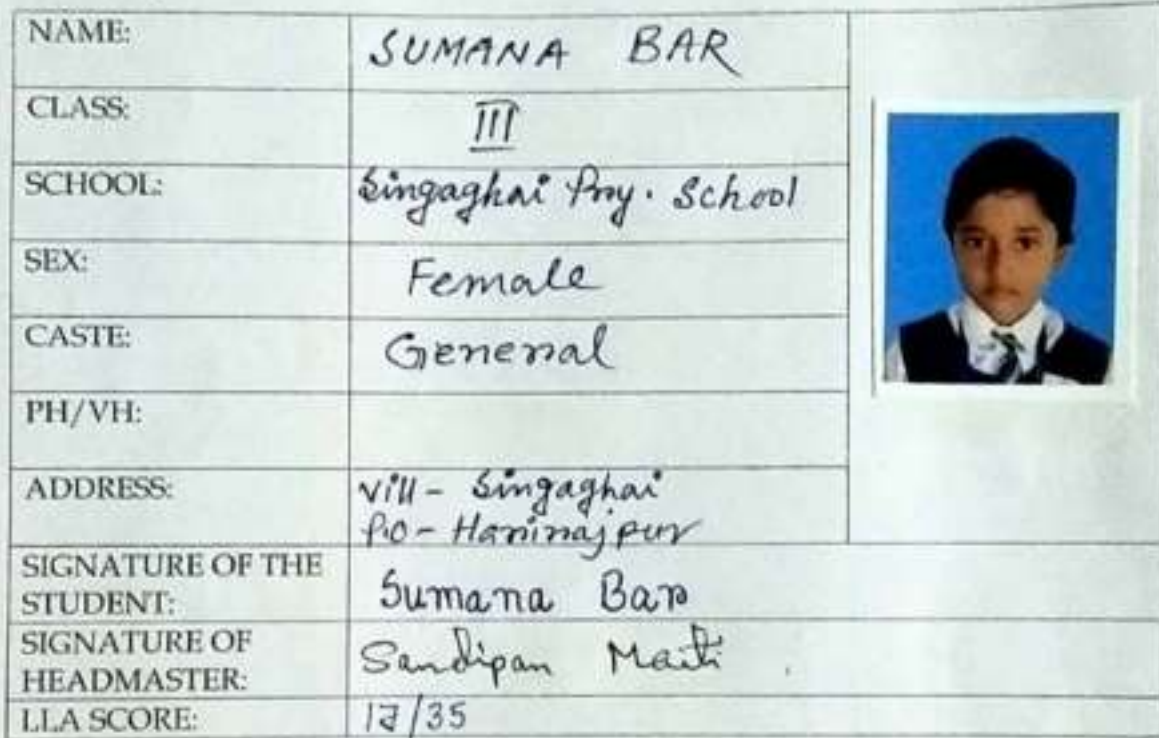 NAME: SUMANA BAR
CLASS: III
SCHOOL: Singaghai Pry. School
SEX: Female
CASTE: General
PH/VH:
ADDRESS: Vill - Singaghai
P.O - Harirajpur
SIGNATURE OF THE
STUDENT: Sumana Bar
SIGNATURE OF
HEADMASTER: Sandipan Maiti
LLA SCORE: /35